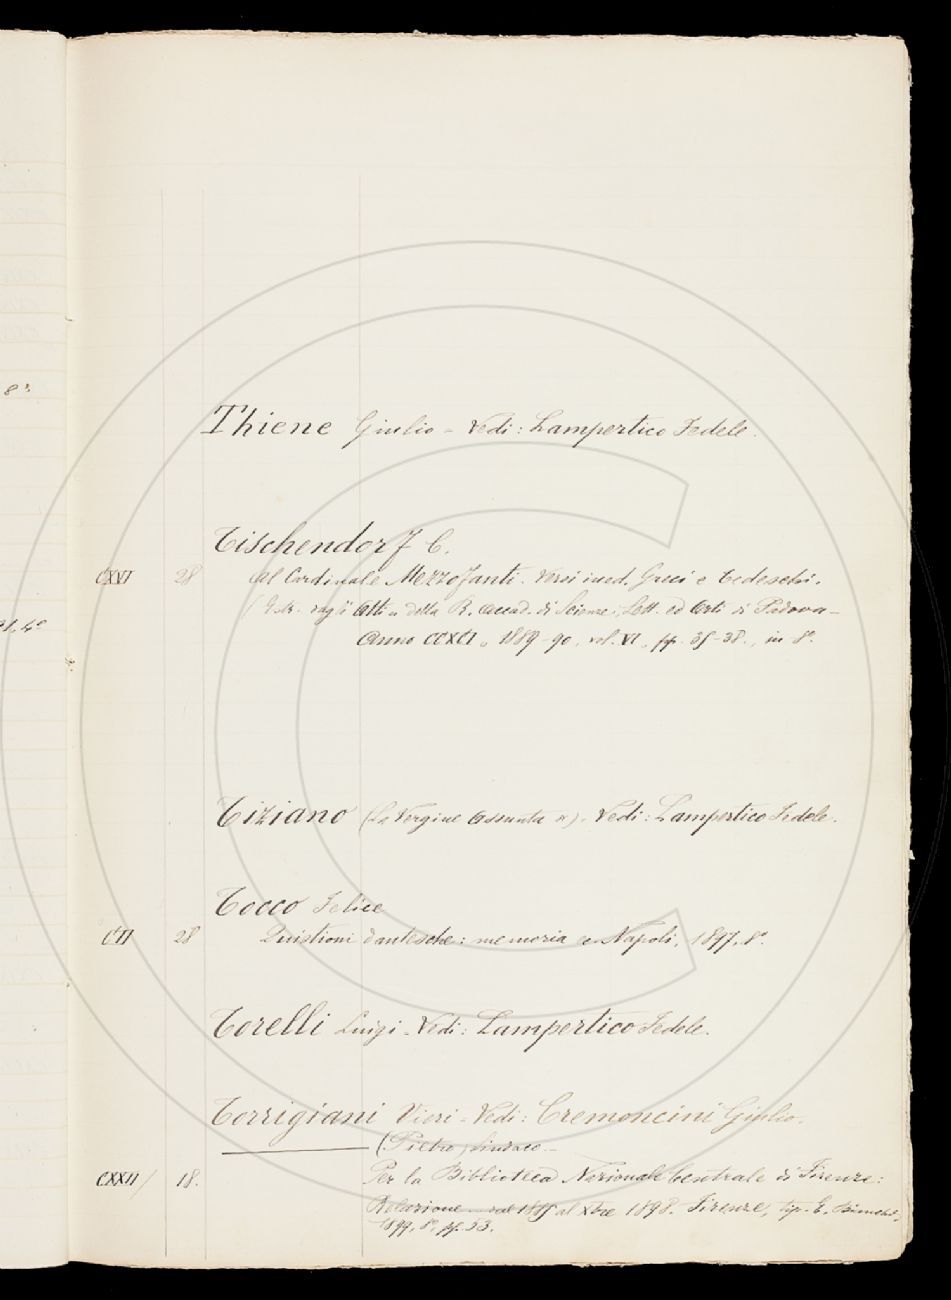 8°.
Thiene Giulio - Vedi: Lampertico Fedele.
Tischendorf C.
CXVI 28 Al Cardinale Mezzofanti. Versi ined. Greci e Tedeschi.
(Estr. dagli Atti della R. Accad. di Scienze, Lett. ed Arti di Padova -
Anno CCXCI, 1889-90, vol. VI, pp. 35-38., in 8°.
4°
Tiziano (La Vergine Assunta). Vedi: Lampertico Fedele.
Tocco Felice
CII 28 Quistioni dantesche: memoria Napoli, 1897, 8°.
Torelli Luigi - Vedi: Lampertico Fedele.
Torrigiani Vieri - Vedi: Cremoncini Giulio.
(Pietro) Sindaco -
CXXII / 18. Per la Biblioteca Nazionale Centrale di Firenze:
Relazione al Xbre 1898. Firenze, tip. E.
1899, 8°, pp. 53.